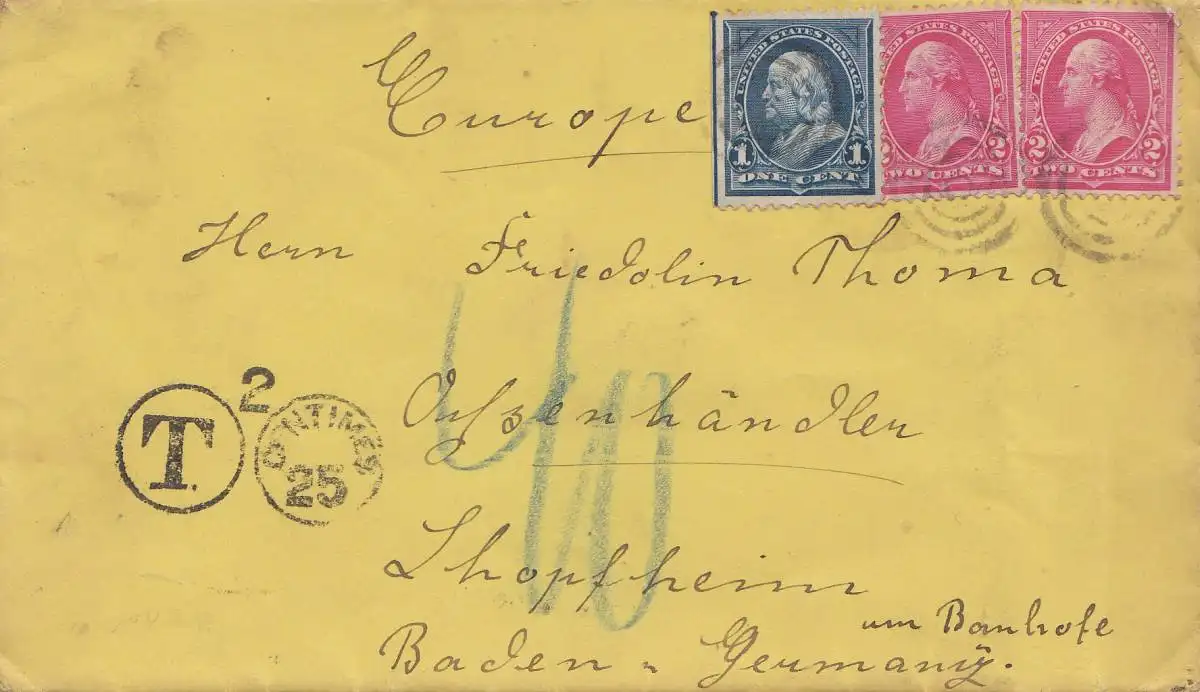 Europe
UNITED STATES POSTAGE
1 1
ONE CENT
UNITED STATES POSTAGE
2
TWO CENTS
UNITED STATES POSTAGE
2 2
TWO CENTS
Hern Friedolin Thoma
Ochsenhändler
T. 2 CENTIMES
25
40
Shopfheim
um Banhofe
Baden " Germany.